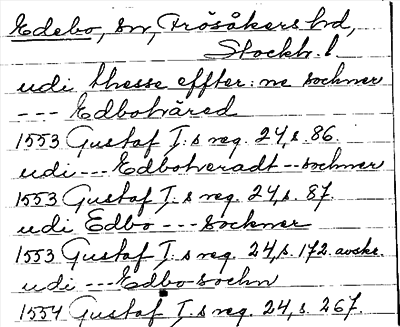 Edebo, sn, Frösåkers hd,
Stockh. l.
udi thesse effter: ne sochner
--- Edbohäred
1553 Gustaf I:s reg. 24, s. 86.
udi --- Edboheradt -- sochner
1553 Gustaf I:s reg. 24, s. 87.
udi Edbo --- sochner
1553 Gustaf I:s reg. 24, s. 172. avskr.
udi --- Edbo sochn
1554 Gustaf I:s reg. 24, s. 267.